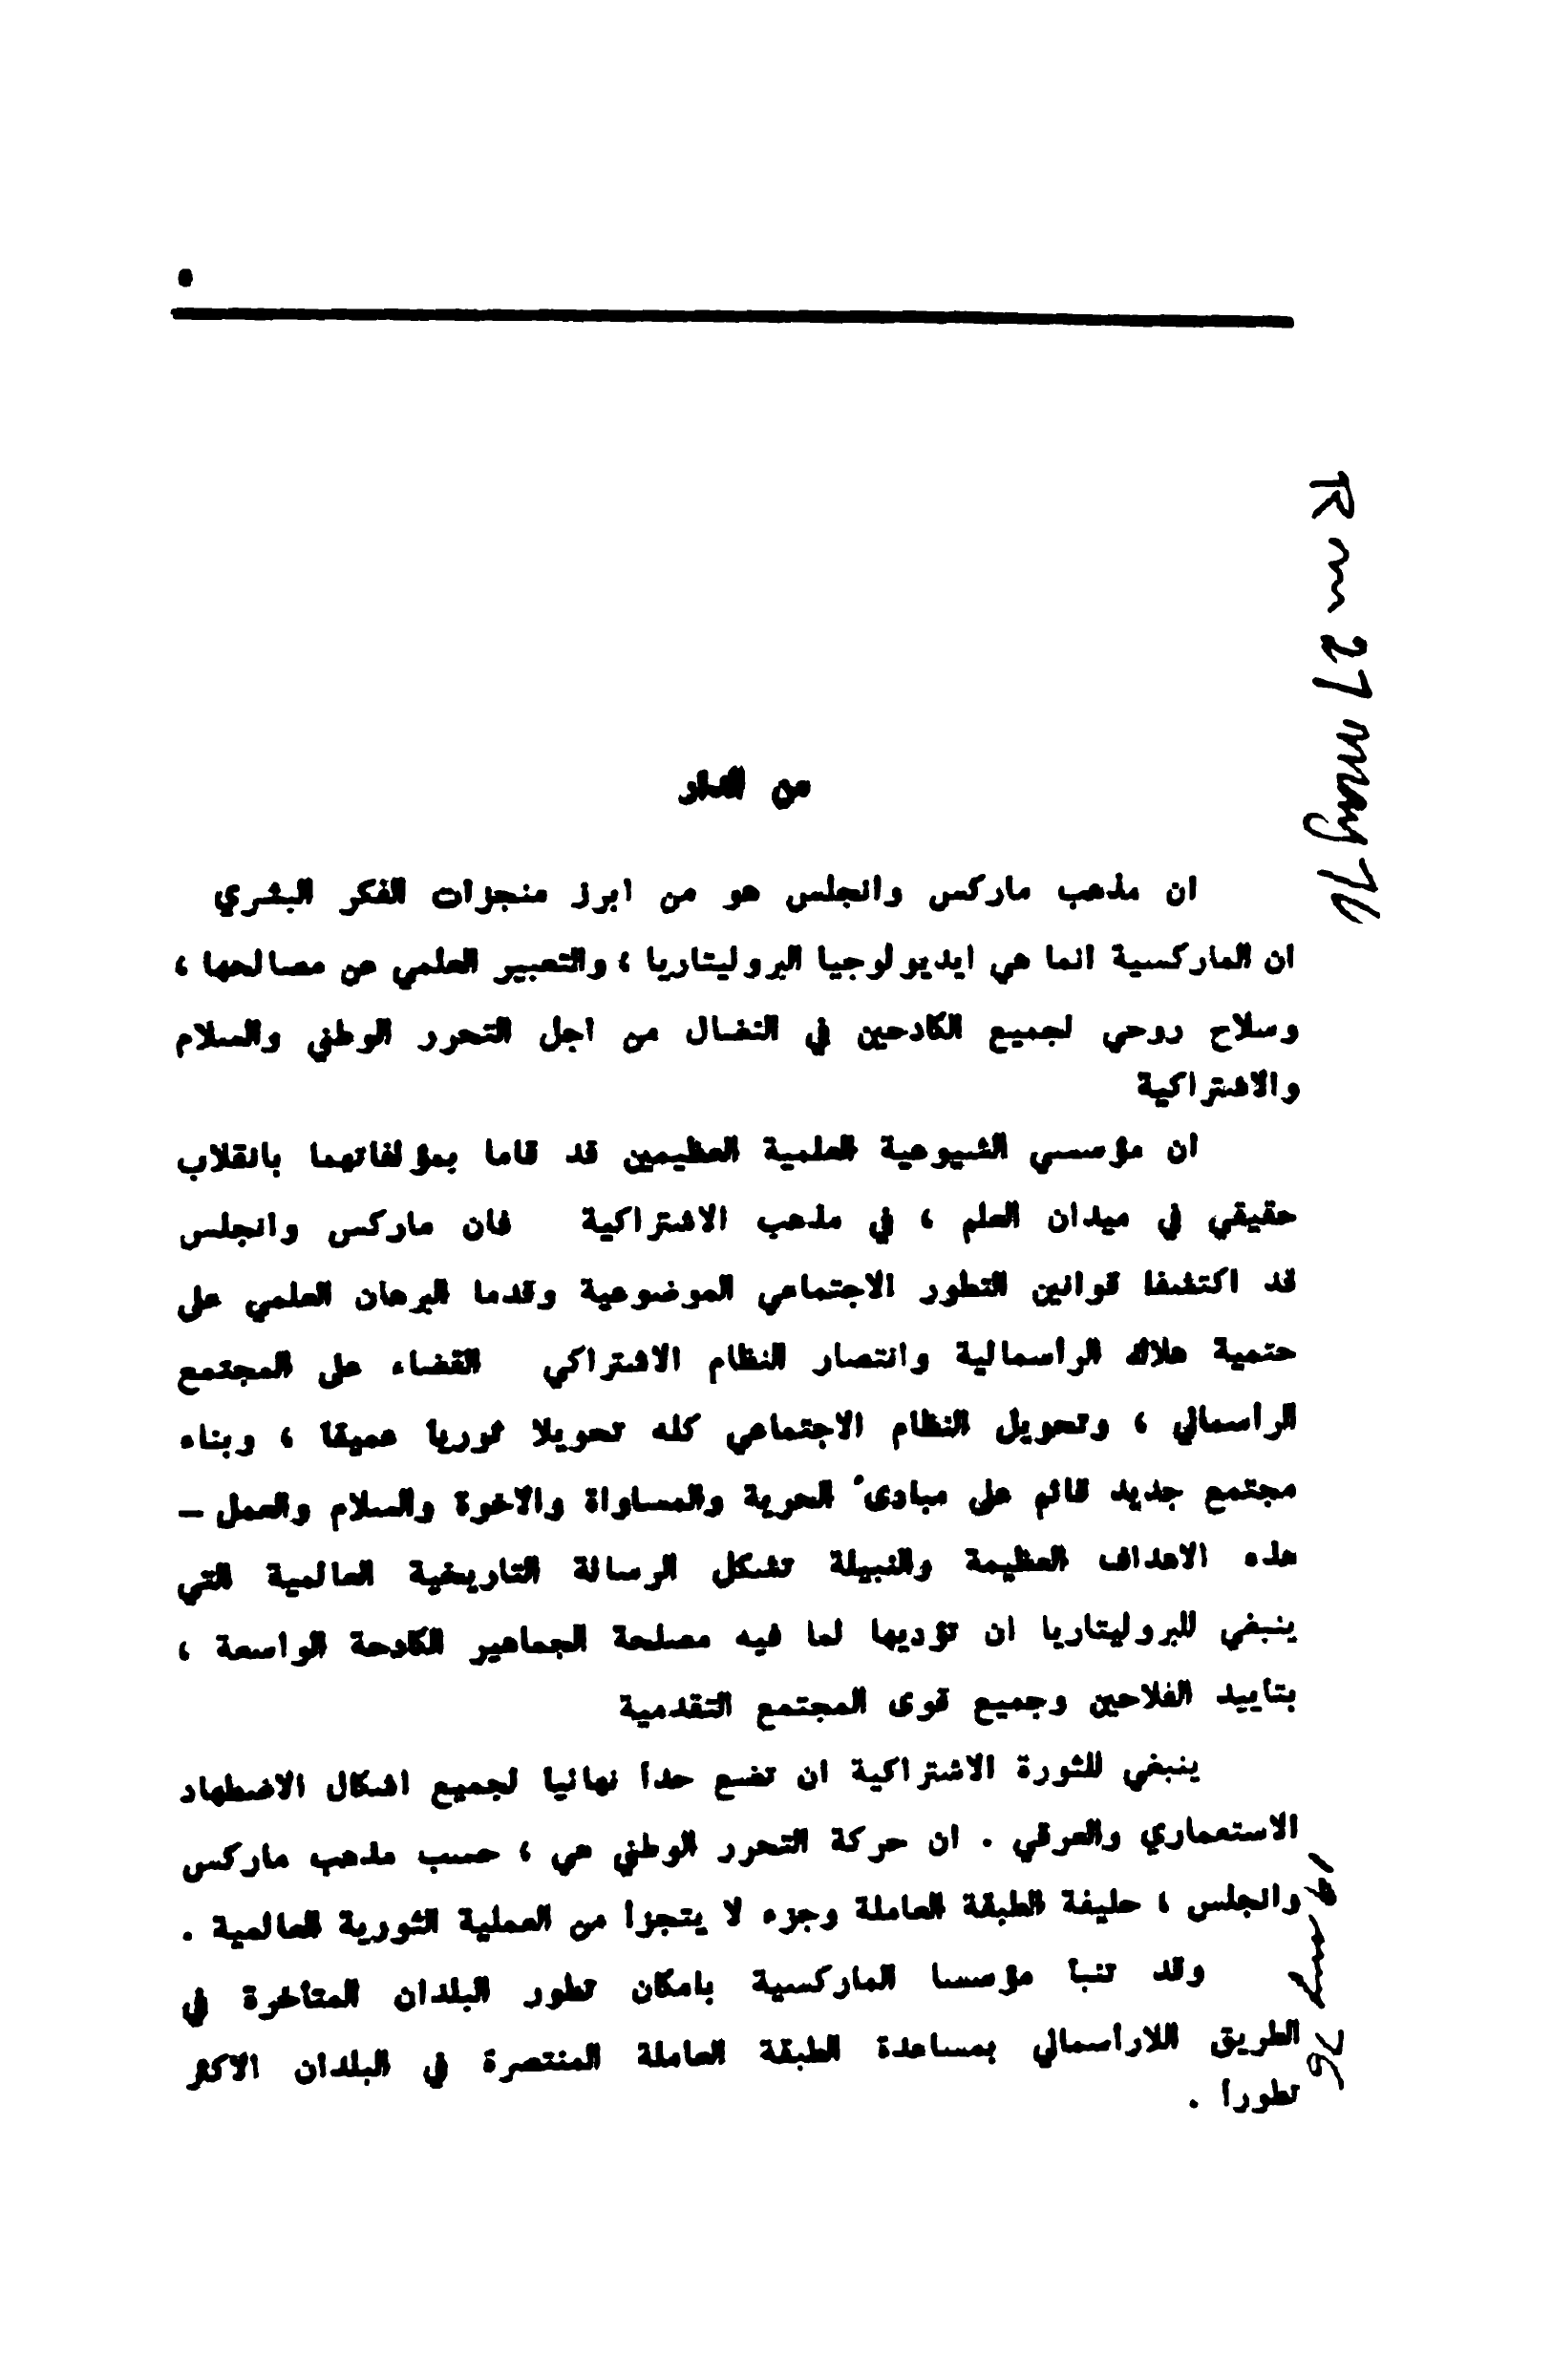 من الدار
ان مذهب ماركس وانجلس هو من ابرز منجزات الفكر البشري
ان الماركسية انما هي ايديولوجيا البروليتاريا ، والتعبير العلمي عن مصالحها ،
وسلاح روحي لجميع الكادحين في النضال من اجل التحرر الوطني والسلام
والاشتراكية
ان مؤسسي الشيوعية العلمية العظيمين قد قاما بمؤلفاتهما بانقلاب
حقيقي في ميدان العلم ، في مذهب الاشتراكية فان ماركس وانجلس
قد اكتشفا قوانين التطور الاجتماعي الموضوعية وقدما البرهان العلمي على
حتمية هلاك الرأسمالية وانتصار النظام الاشتراكي القضاء على المجتمع
الراسمالي ، وتحويل النظام الاجتماعي كله تحويلا ثوريا عميقا ، وبناء
مجتمع جديد قائم على مبادىء الحرية والمساواة والاخوة والسلام والعمل –
هذه الاهداف العظيمة والنبيلة تشكل الرسالة التاريخية العالمية التي
ينبغي للبروليتاريا ان تؤديها لما فيه مصلحة الجماهير الكادحة الواسعة ،
بتاييد الفلاحين وجميع قوى المجتمع التقدمية
ينبغي للثورة الاشتراكية ان تضع حداً نهائيا لجميع اشكال الاضطهاد
الاستعماري والعرقي . ان حركة التحرر الوطني هي ، حسب مذهب ماركس
وانجلس ، حليفة الطبقة العاملة وجزء لا يتجزأ من العملية الثورية العالمية .
وقد تنبأ مؤسسا الماركسية بامكان تطور البلدان المتأخرة في
الطريق اللارأسمالي بمساعدة الطبقة العاملة المنتصرة في البلدان الاكثر
تطوراً .
27 may 76